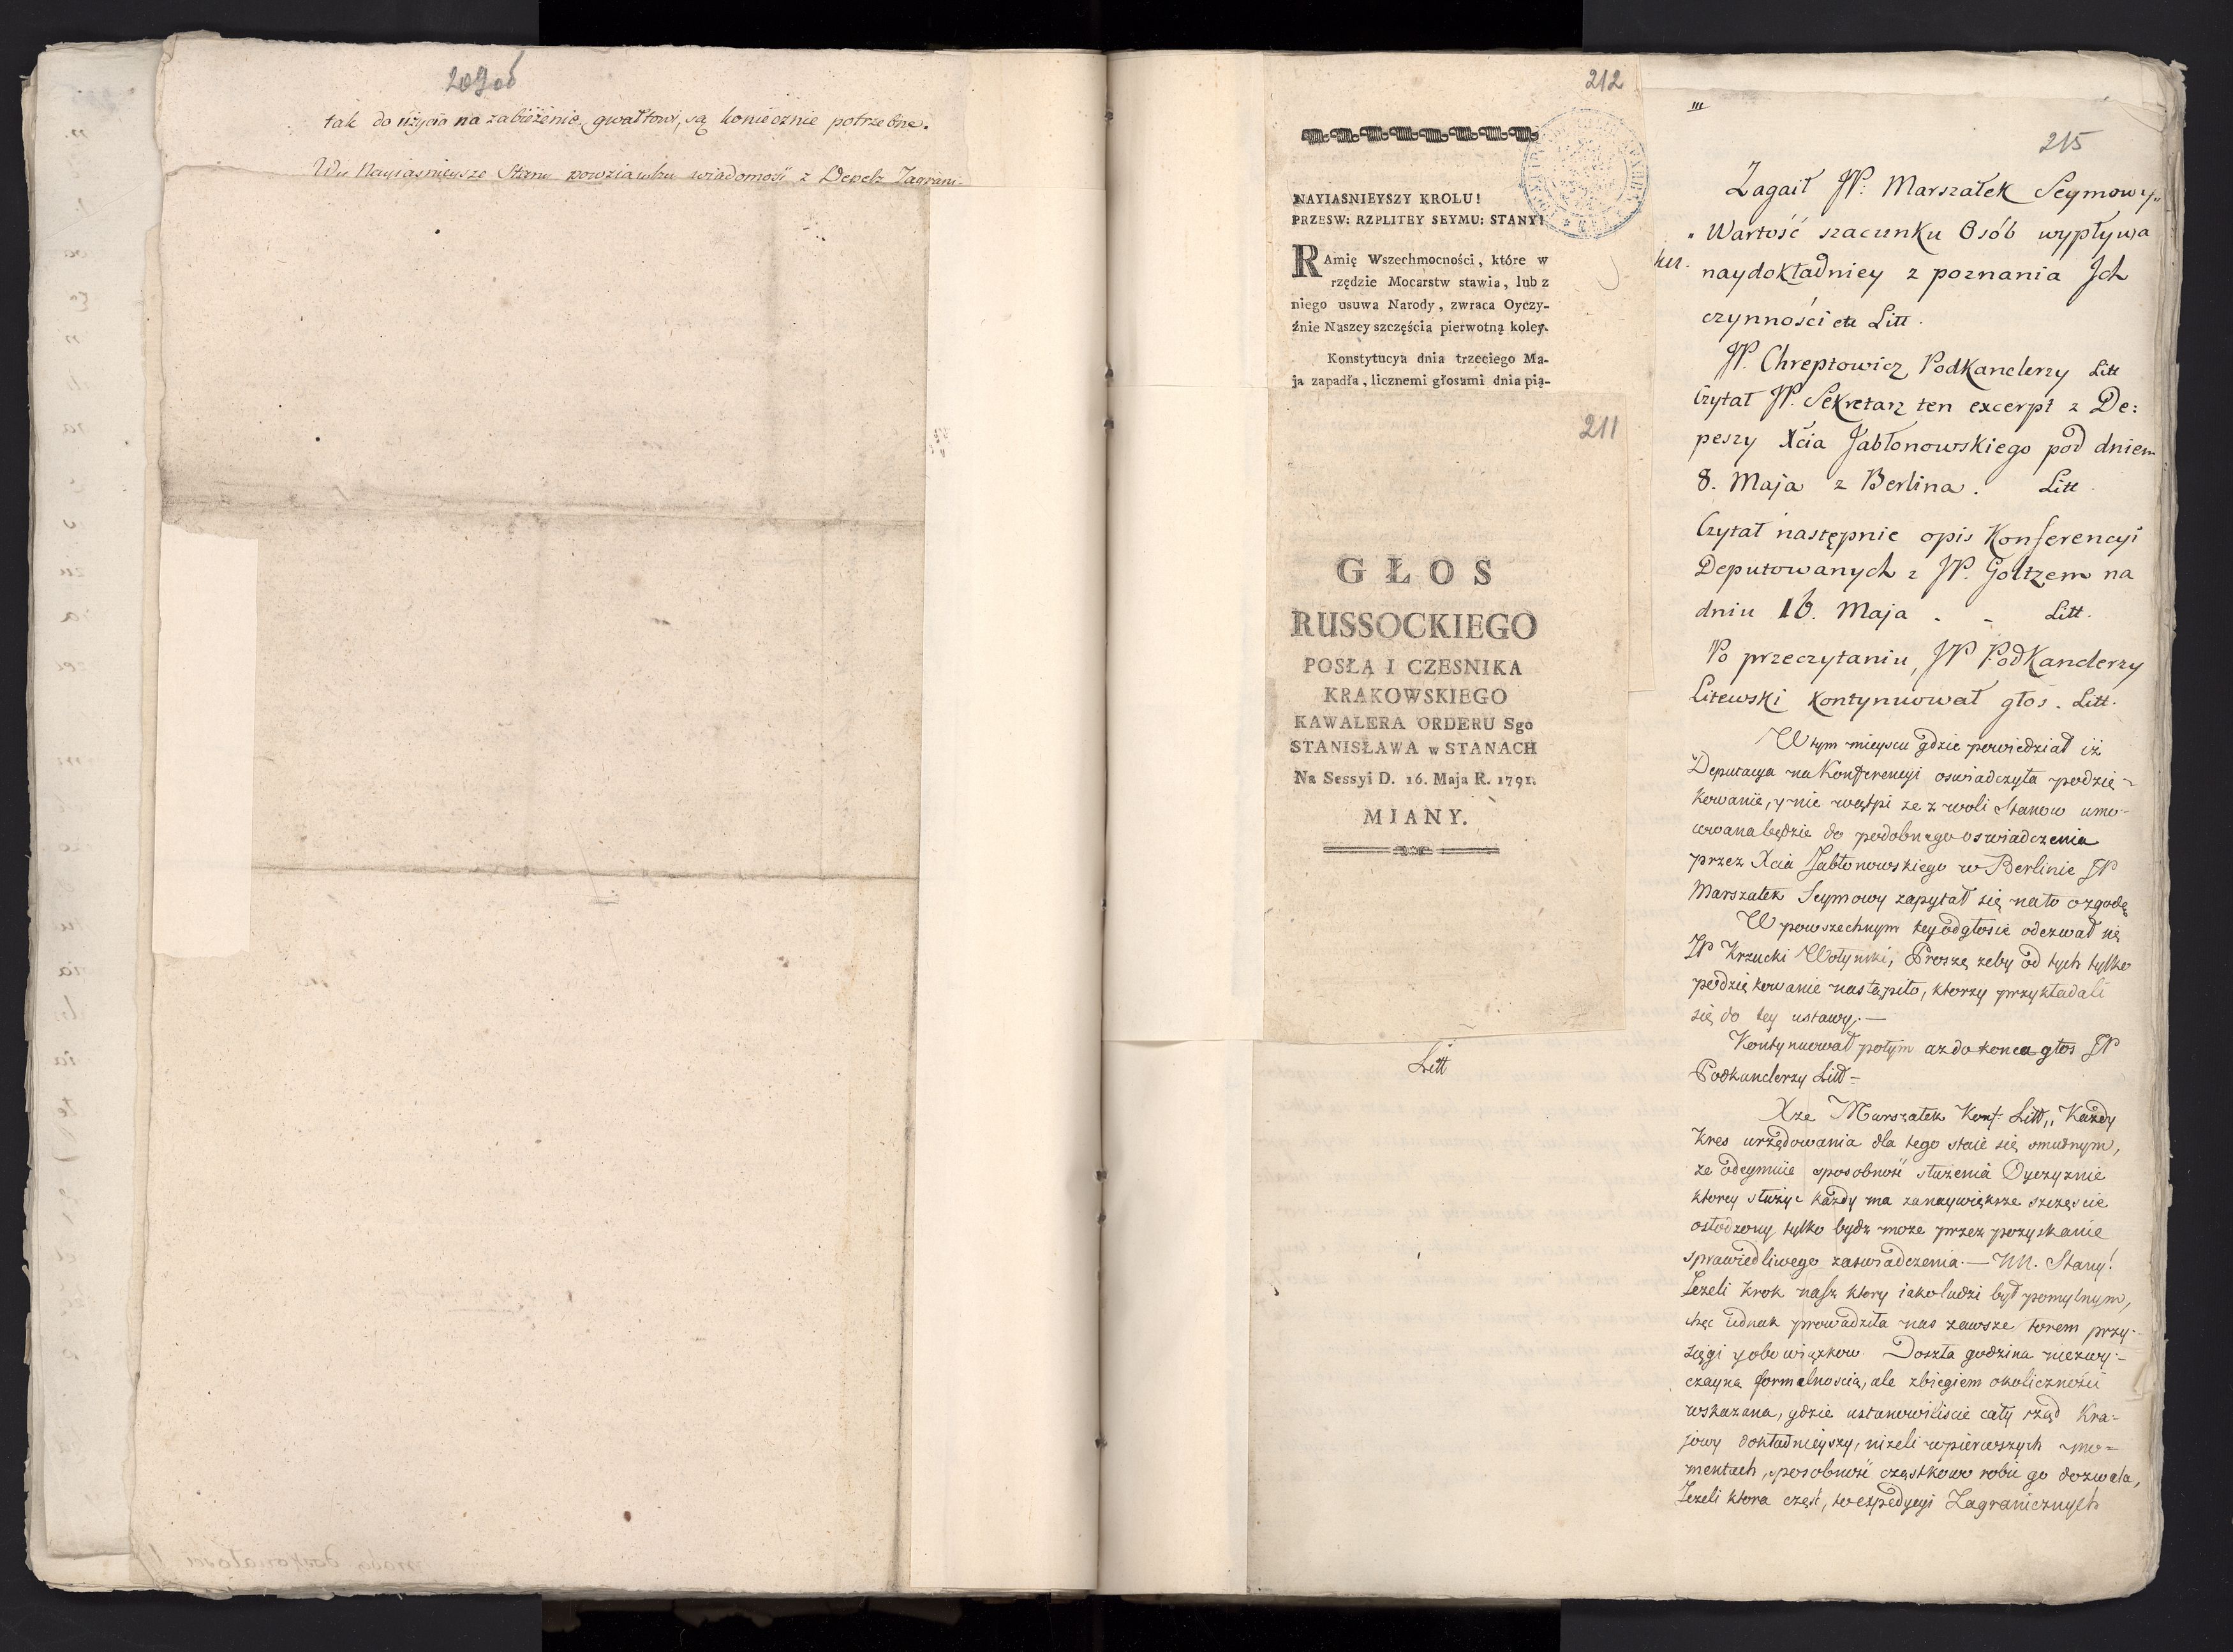 209od
tak do użycia na zabieżenie gwałtowi, są koniecznie potrzebne.
Wy Nayiasnieysze Stany powziąwszy wiadomość z Depesz Zagrani-
212
NAYIASNIEYSZY KROLU!
PRZESW: RZPLITEY SEYMU: STANY!
RAmię Wszechmocności, które w
rzędzie Mocarstw stawia, lub z
niego usuwa Narody, zwraca Oyczy-
źnie Naszey szczęścia pierwotną koley.
Konstytucya dnia trzeciego Ma-
ja zapadła, licznemi głosami dnia pią-
211
GŁOS
RUSSOCKIEGO
POSŁA I CZESNIKA
KRAKOWSKIEGO
KAWALERA ORDERU Sgo
STANISŁAWA w STANACH
Na Sessyi D. 16. Maja R. 1791.
MIANY.
Litt
215
Zagaił JP: Marszałek Seymowy„
„ Wartość szacunku Osób wypływa
naydokładniey z poznania Jch
czynności etc Litt.
JP. Chreptowicz Podkanclerzy Litt
Czytał JP. Sekretarz ten excerpt z De:
peszy Xcia Jabłonowskiego pod dniem
8. Maja z Berlina. Litt.
Czytał następnie opis Konferencyi
Deputowanych z JP. Goltzem na
dniu 16. Maja - - Litt.
Po przeczytaniu, JP PodKanclerzy
Litewski kontynuował głos. Litt.
W tym mieyscu gdzie powiedział iż
Deputacya na Konferencyi oswiadczyła podzię-
kowanie, y nie wątpi ze z woli Stanow umo-
cowana będzie do podobnego oswiadczenia
przez Xcia Jabłonowskiego w Berlinie JP
Marszałek Seymowy zapytał się na to o zgodę
W powszechnym tey odgłosie odezwał się
JP Krzucki Wołynski, Proszę zeby od tych tylko
podziękowanie nastąpiło, ktorzy przykładali
się do tey ustawy. —
Kontynuował potym az do konca głos JP
Podkanclerzy Litt-
Xze Marszałek Konf: Litt„ Każdy
Kres urzędowania dla tego staie się smutnym,
ze odeymuie sposobność służenia Oyczyznie
ktorey służyc każdy ma za naywiększe szczęscie
osłodzony tylko bydz może przez pozyskanie
sprawiedliwego zaswiadczenia. — NN. Stany!
Jezeli krok nasz ktory iako ludzi był pomylnym,
chęc iednak prowadziła nas zawsze torem przy-
sięgi y obowiązkow. Doszła godzina niezwy-
czayną formalnoscią, ale zbiegiem okoliczności
wskazana, gdzie ustanowiliscie cały rząd Kra-
jowy dokładnieyszy, nizeli w pierwszych mo-
mentach, sposobność cząstkowo robić go dozwala,
Jezeli ktora część, to expedycyi Zagranicznych